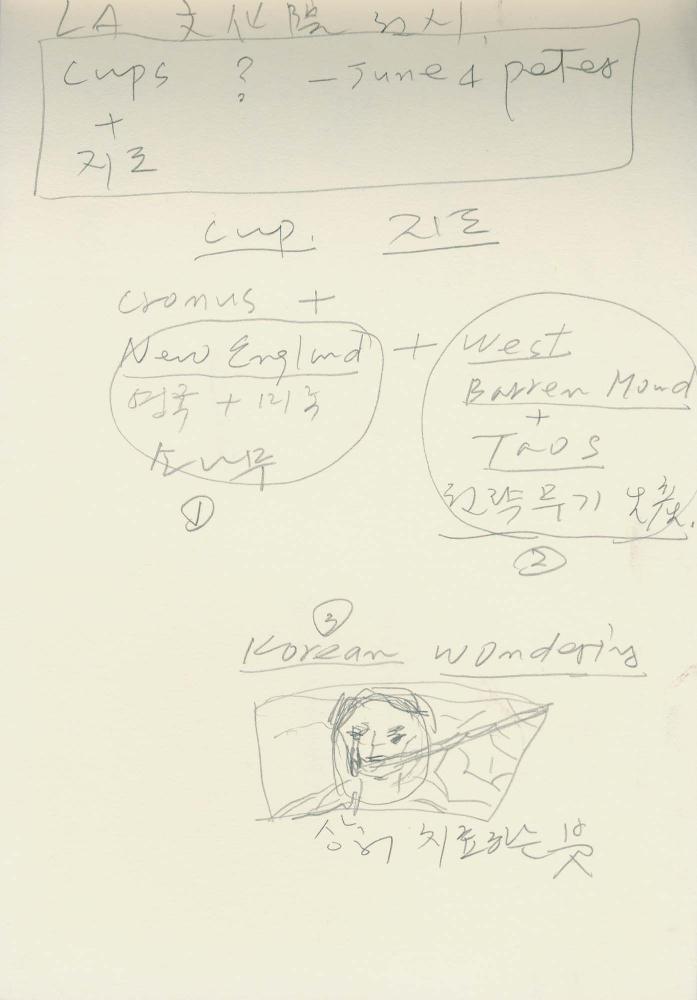 LA 文化院
cups ? - June 4
+
지도
cup. 지도
cronus +
New England + West
영국 + 미국 Barren Mound
+
소나무 Taos
① ②
③
Korean wondering
상처 치료하는 붓